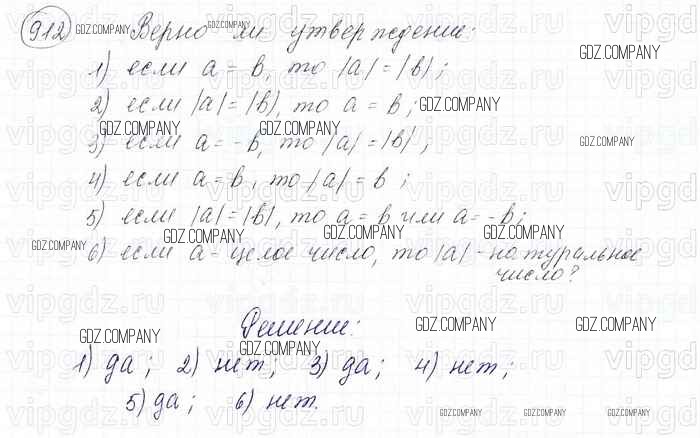 912 GDZ.COMPANY Верно GDZ.COMPANY ли утверждение:
GDZ.COMPANY
1) если a = b, то |a| = |b|;
2) если |a| = |b|, то a = b; GDZ.COMPANY
GDZ.COMPANY GDZ.COMPANY
3) если a = -b, то |a| = |b|; GDZ.COMPANY
4) если a = b, то |a| = b;
5) если |a| = |b|, то a = b или a = -b;
GDZ.COMPANY GDZ.COMPANY GDZ.COMPANY GDZ.COMPANY
6) если a - целое число, то |a| - натуральное
число?
Решение:
GDZ.COMPANY GDZ.COMPANY GDZ.COMPANY
GDZ.COMPANY
1) да; 2) нет; 3) да; 4) нет;
5) да; 6) нет.
GDZ.COMPANY GDZ.COMPANY GDZ.COMPANY
vipgdz.ru